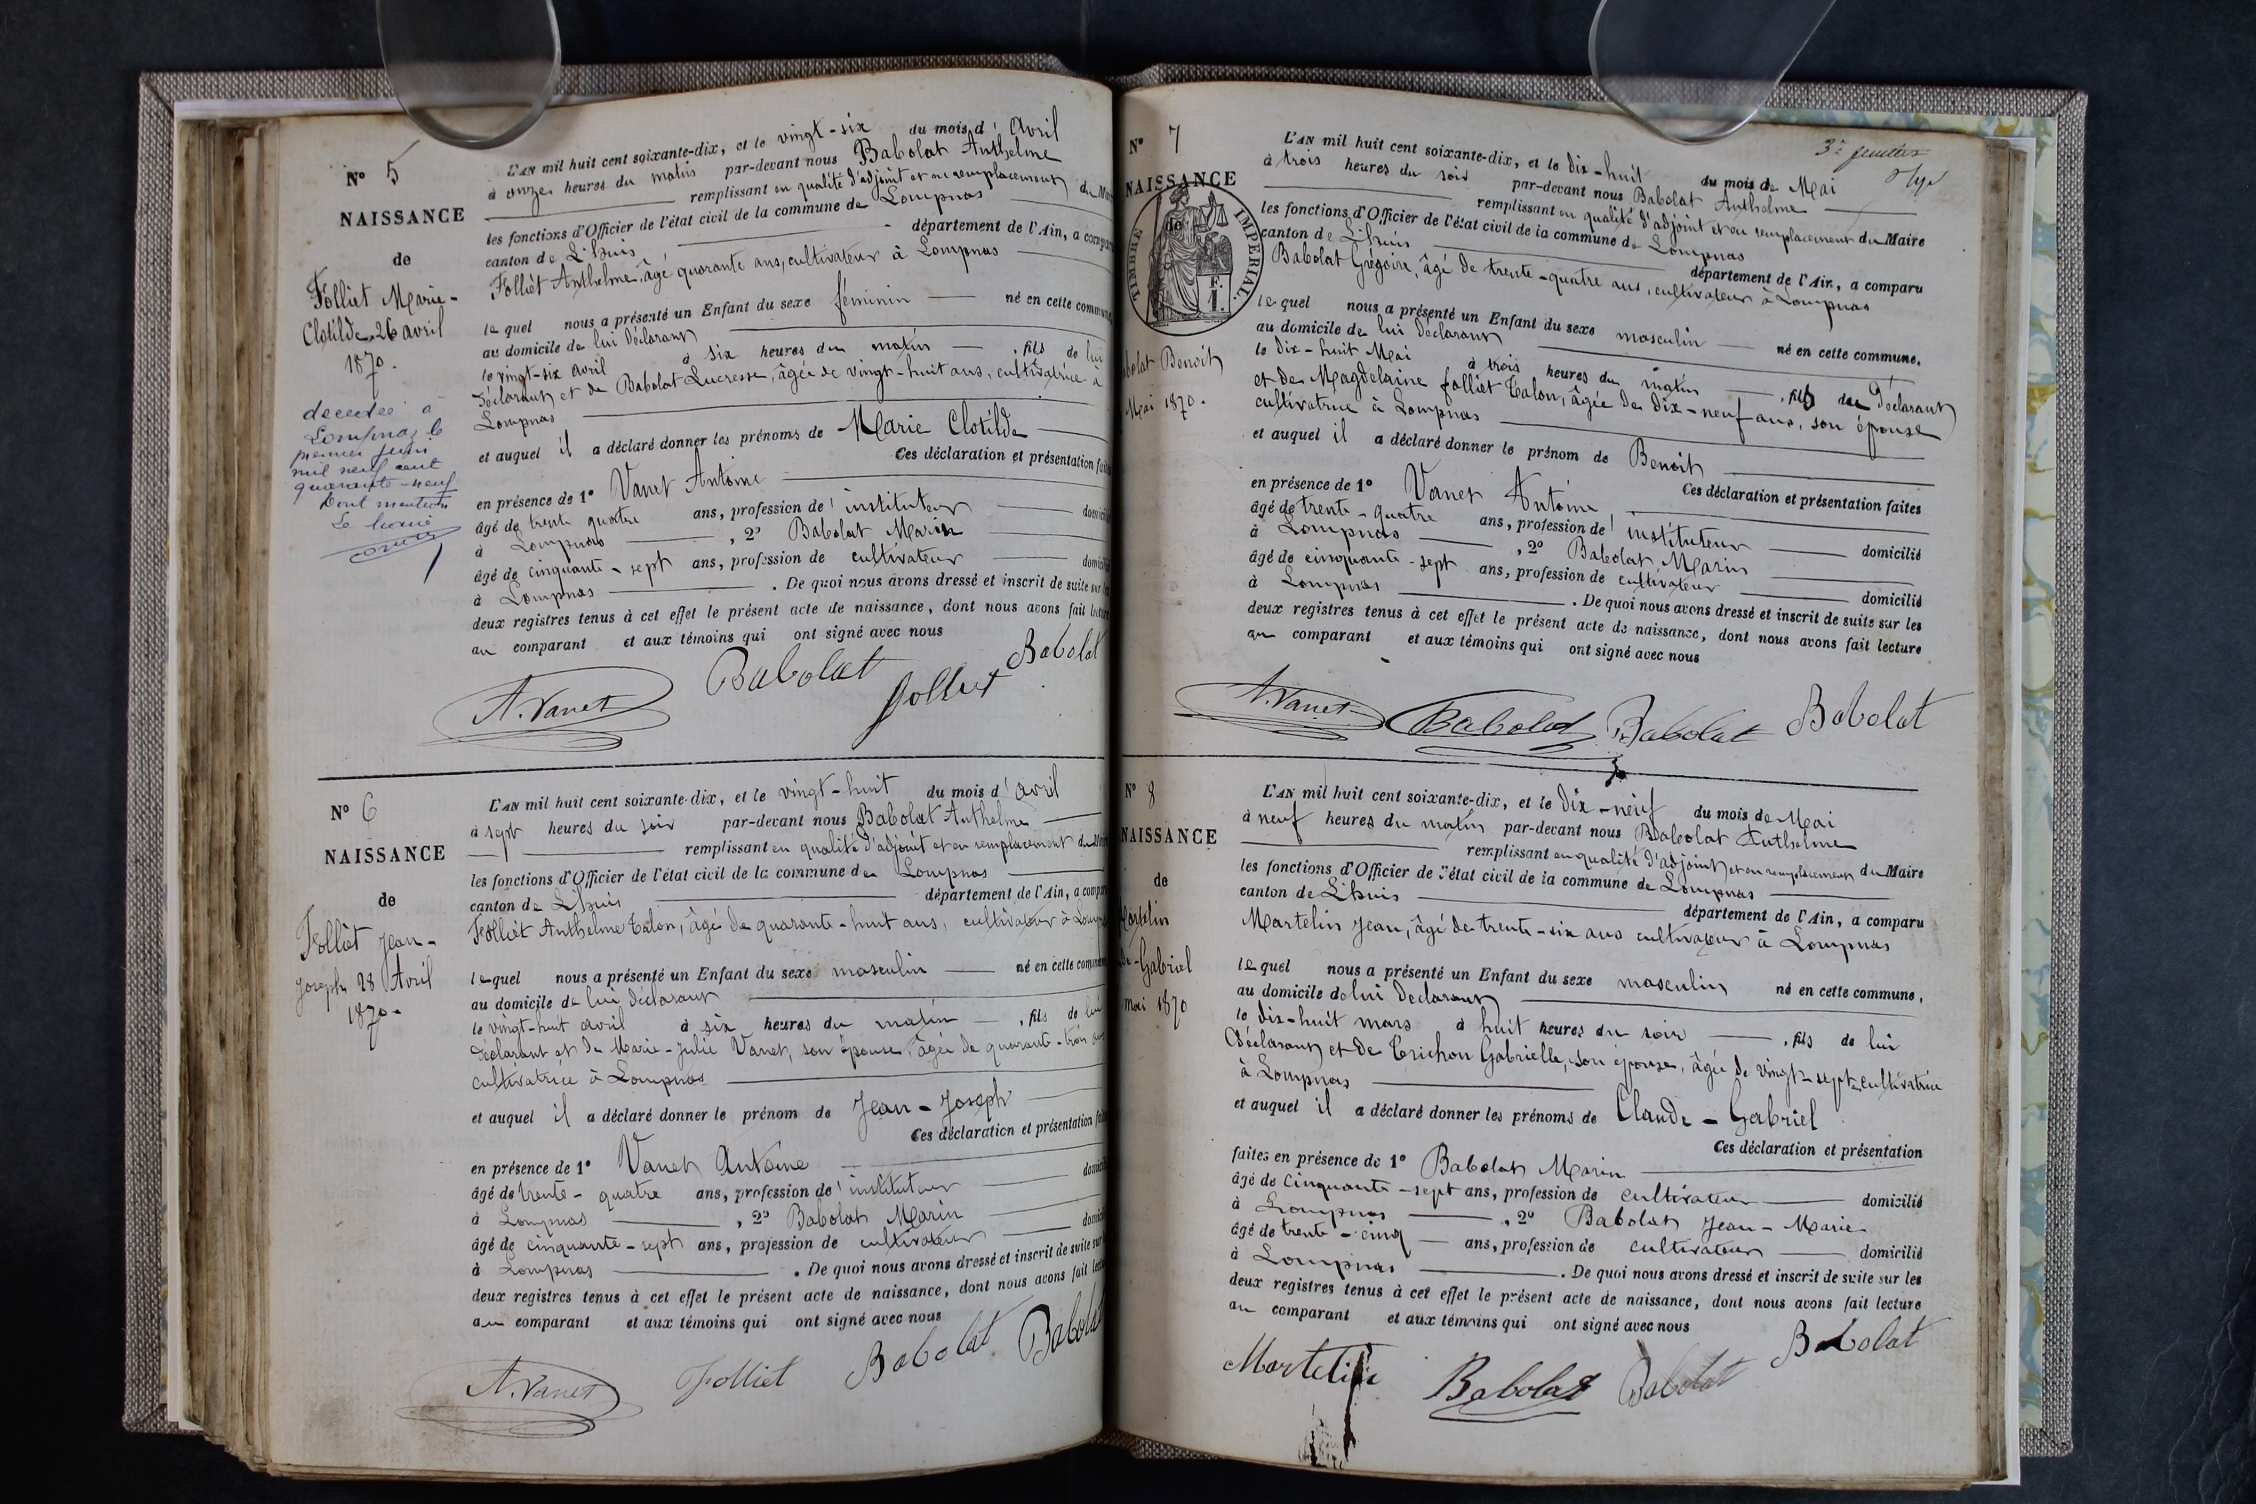 N° 5
NAISSANCE
de
Folliet Marie-
Clotilde, 26 avril
1870.
décédée à
Lompnaz le
premier juin
mil neuf cent
quarante-neuf
Dont mention
Le Maire
L'AN mil huit cent soixante-dix, et le vingt-six du mois d'Avril
à onze heures du matin par-devant nous Babolat Anthelme
remplissant en qualité d'adjoint et en remplacement du Maire
les fonctions d'Officier de l'état civil de la commune de Lompnas
canton de L'huis département de l'Ain, a comparu
Folliet Anthelme, âgé quarante ans, cultivateur à Lompnas
lequel nous a présenté un Enfant du sexe féminin né en cette commune,
au domicile de lui déclarant
le vingt-six avril à six heures du matin, fils de lui
déclarant et de Babolat Lucresse, âgée de vingt-huit ans, cultivatrice à
Lompnas
et auquel il a déclaré donner les prénoms de Marie Clotilde
Ces déclaration et présentation faites
en présence de 1° Vanet Antoine
âgé de trente quatre ans, profession d'instituteur domicilié
à Lompnas, 2° Babolat Marin
âgé de cinquante-sept ans, profession de cultivateur domicilié
à Lompnas. De quoi nous avons dressé et inscrit de suite sur les
deux registres tenus à cet effet le présent acte de naissance, dont nous avons fait lecture
au comparant et aux témoins qui ont signé avec nous
A. Vanet Babolat Folliet Babolat
N° 6
NAISSANCE
de
Folliet Jean-
Joseph 28 Avril
1870.
L'AN mil huit cent soixante-dix, et le vingt-huit du mois d'avril
à sept heures du soir par-devant nous Babolat Anthelme
remplissant en qualité d'adjoint et en remplacement du Maire
les fonctions d'Officier de l'état civil de la commune de Lompnas
canton de L'huis département de l'Ain, a comparu
Folliet Anthelme Talon, âgé de quarante-huit ans, cultivateur à Lompnas
lequel nous a présenté un Enfant du sexe masculin né en cette commune
au domicile de lui déclarant
le vingt-huit avril à six heures du matin, fils de lui
déclarant et de Marie-Julie Vanet, son épouse, âgée de quarante-trois ans
cultivatrice à Lompnas
et auquel il a déclaré donner le prénom de Jean-Joseph
Ces déclaration et présentation faites
en présence de 1° Vanet Antoine
âgé de trente-quatre ans, profession d'instituteur domicilié
à Lompnas, 2° Babolat Marin
âgé de cinquante-sept ans, profession de cultivateur domicilié
à Lompnas. De quoi nous avons dressé et inscrit de suite sur
deux registres tenus à cet effet le présent acte de naissance, dont nous avons fait lecture
au comparant et aux témoins qui ont signé avec nous
A. Vanet Folliet Babolat Babolat
3e feuillet
N° 7
NAISSANCE
de
TIMBRE IMPERIAL.
Babolat Benoit
Mai 1870.
L'AN mil huit cent soixante-dix, et le dix-huit du mois de Mai
à trois heures du soir par-devant nous Babolat Anthelme
remplissant en qualité d'adjoint et en remplacement du Maire
les fonctions d'Officier de l'état civil de la commune de Lompnas
canton de L'huis département de l'Ain, a comparu
Babolat Grégoire, âgé de trente-quatre ans, cultivateur à Lompnas
lequel nous a présenté un Enfant du sexe masculin né en cette commune.
au domicile de lui déclarant
le dix-huit Mai à trois heures du matin, fils du déclarant
et de Magdelaine folliet Talon, âgée de dix-neuf ans, son épouse
cultivatrice à Lompnas
et auquel il a déclaré donner le prénom de Benoit
Ces déclaration et présentation faites
en présence de 1° Vanet Antoine
âgé de trente-quatre ans, profession d'instituteur domicilié
à Lompnas, 2° Babolat Marin
âgé de cinquante-sept ans, profession de cultivateur domicilié
à Lompnas. De quoi nous avons dressé et inscrit de suite sur les
deux registres tenus à cet effet le présent acte de naissance, dont nous avons fait lecture
au comparant et aux témoins qui ont signé avec nous
A. Vanet Babolat Babolat Babolat
N° 8
NAISSANCE
de
Martelin
de-Gabriel
mai 1870
L'AN mil huit cent soixante-dix, et le dix-neuf du mois de Mai
à neuf heures du matin par-devant nous Babolat Anthelme
remplissant en qualité d'adjoint et en remplacement du Maire
les fonctions d'Officier de l'état civil de la commune de Lompnas
canton de L'huis département de l'Ain, a comparu
Martelin Jean, âgé de trente-six ans cultivateur à Lompnas
lequel nous a présenté un Enfant du sexe masculin né en cette commune,
au domicile de lui déclarant
le dix-huit mars à huit heures du soir, fils de lui
déclarant et de Trichon Gabrielle, son épouse, âgée de vingt-sept cultivatrice
à Lompnas
et auquel il a déclaré donner les prénoms de Claude-Gabriel
Ces déclaration et présentation
faites en présence de 1° Babolat Marin
âgé de cinquante-sept ans, profession de cultivateur domicilié
à Lompnas, 2° Babolat Jean-Marie
âgé de trente-cinq ans, profession de cultivateur domicilié
à Lompnas. De quoi nous avons dressé et inscrit de suite sur les
deux registres tenus à cet effet le présent acte de naissance, dont nous avons fait lecture
au comparant et aux témoins qui ont signé avec nous
Martelin Babolat Babolat Babolat